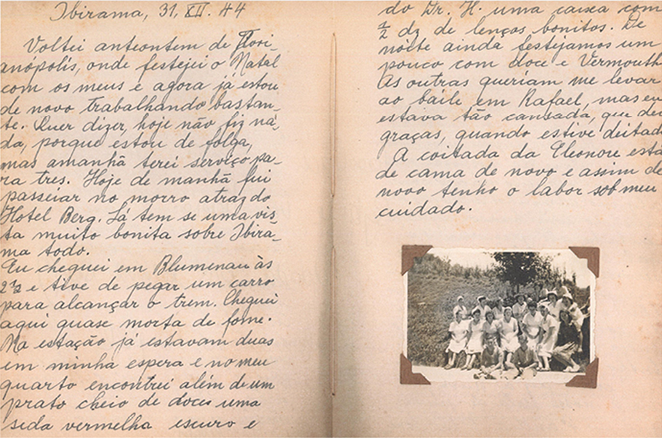 Ibirama, 31, XII. 44
Voltei anteontem de Flori-
anópolis, onde festejei o Natal
com os meus e agora já estou
de novo trabalhando bastan-
te. Quer dizer, hoje não fiz na-
da, porque estou de folga,
mas amanhã terei serviço pa-
ra tres. Hoje de manhã fui
passeiar no morro atraz do
Hotel Berg. Lá tem se uma vis-
ta muito bonita sobre Ibira-
ma todo.
Eu cheguei em Blumenau às
2½ e tive de pegar um carro
para alcançar o trem. Cheguei
aqui quase morta de fome.
Na estação já estavam duas
em minha espera e no meu
quarto encontrei além de um
prato cheio de doces uma
seda vermelha escuro e
do Dr. H. uma caixa com
½ dz de lenços bonitos. De
noite ainda festejamos um
pouco com doce e Vermouth
As outras queriam me levar
ao baile em Rafael, mas eu
estava tão cansada, que dei
graças, quando estive deitada
A coitada da Eleonore esta
de cama de novo e assim de
novo tenho o labor sob meu
cuidado.